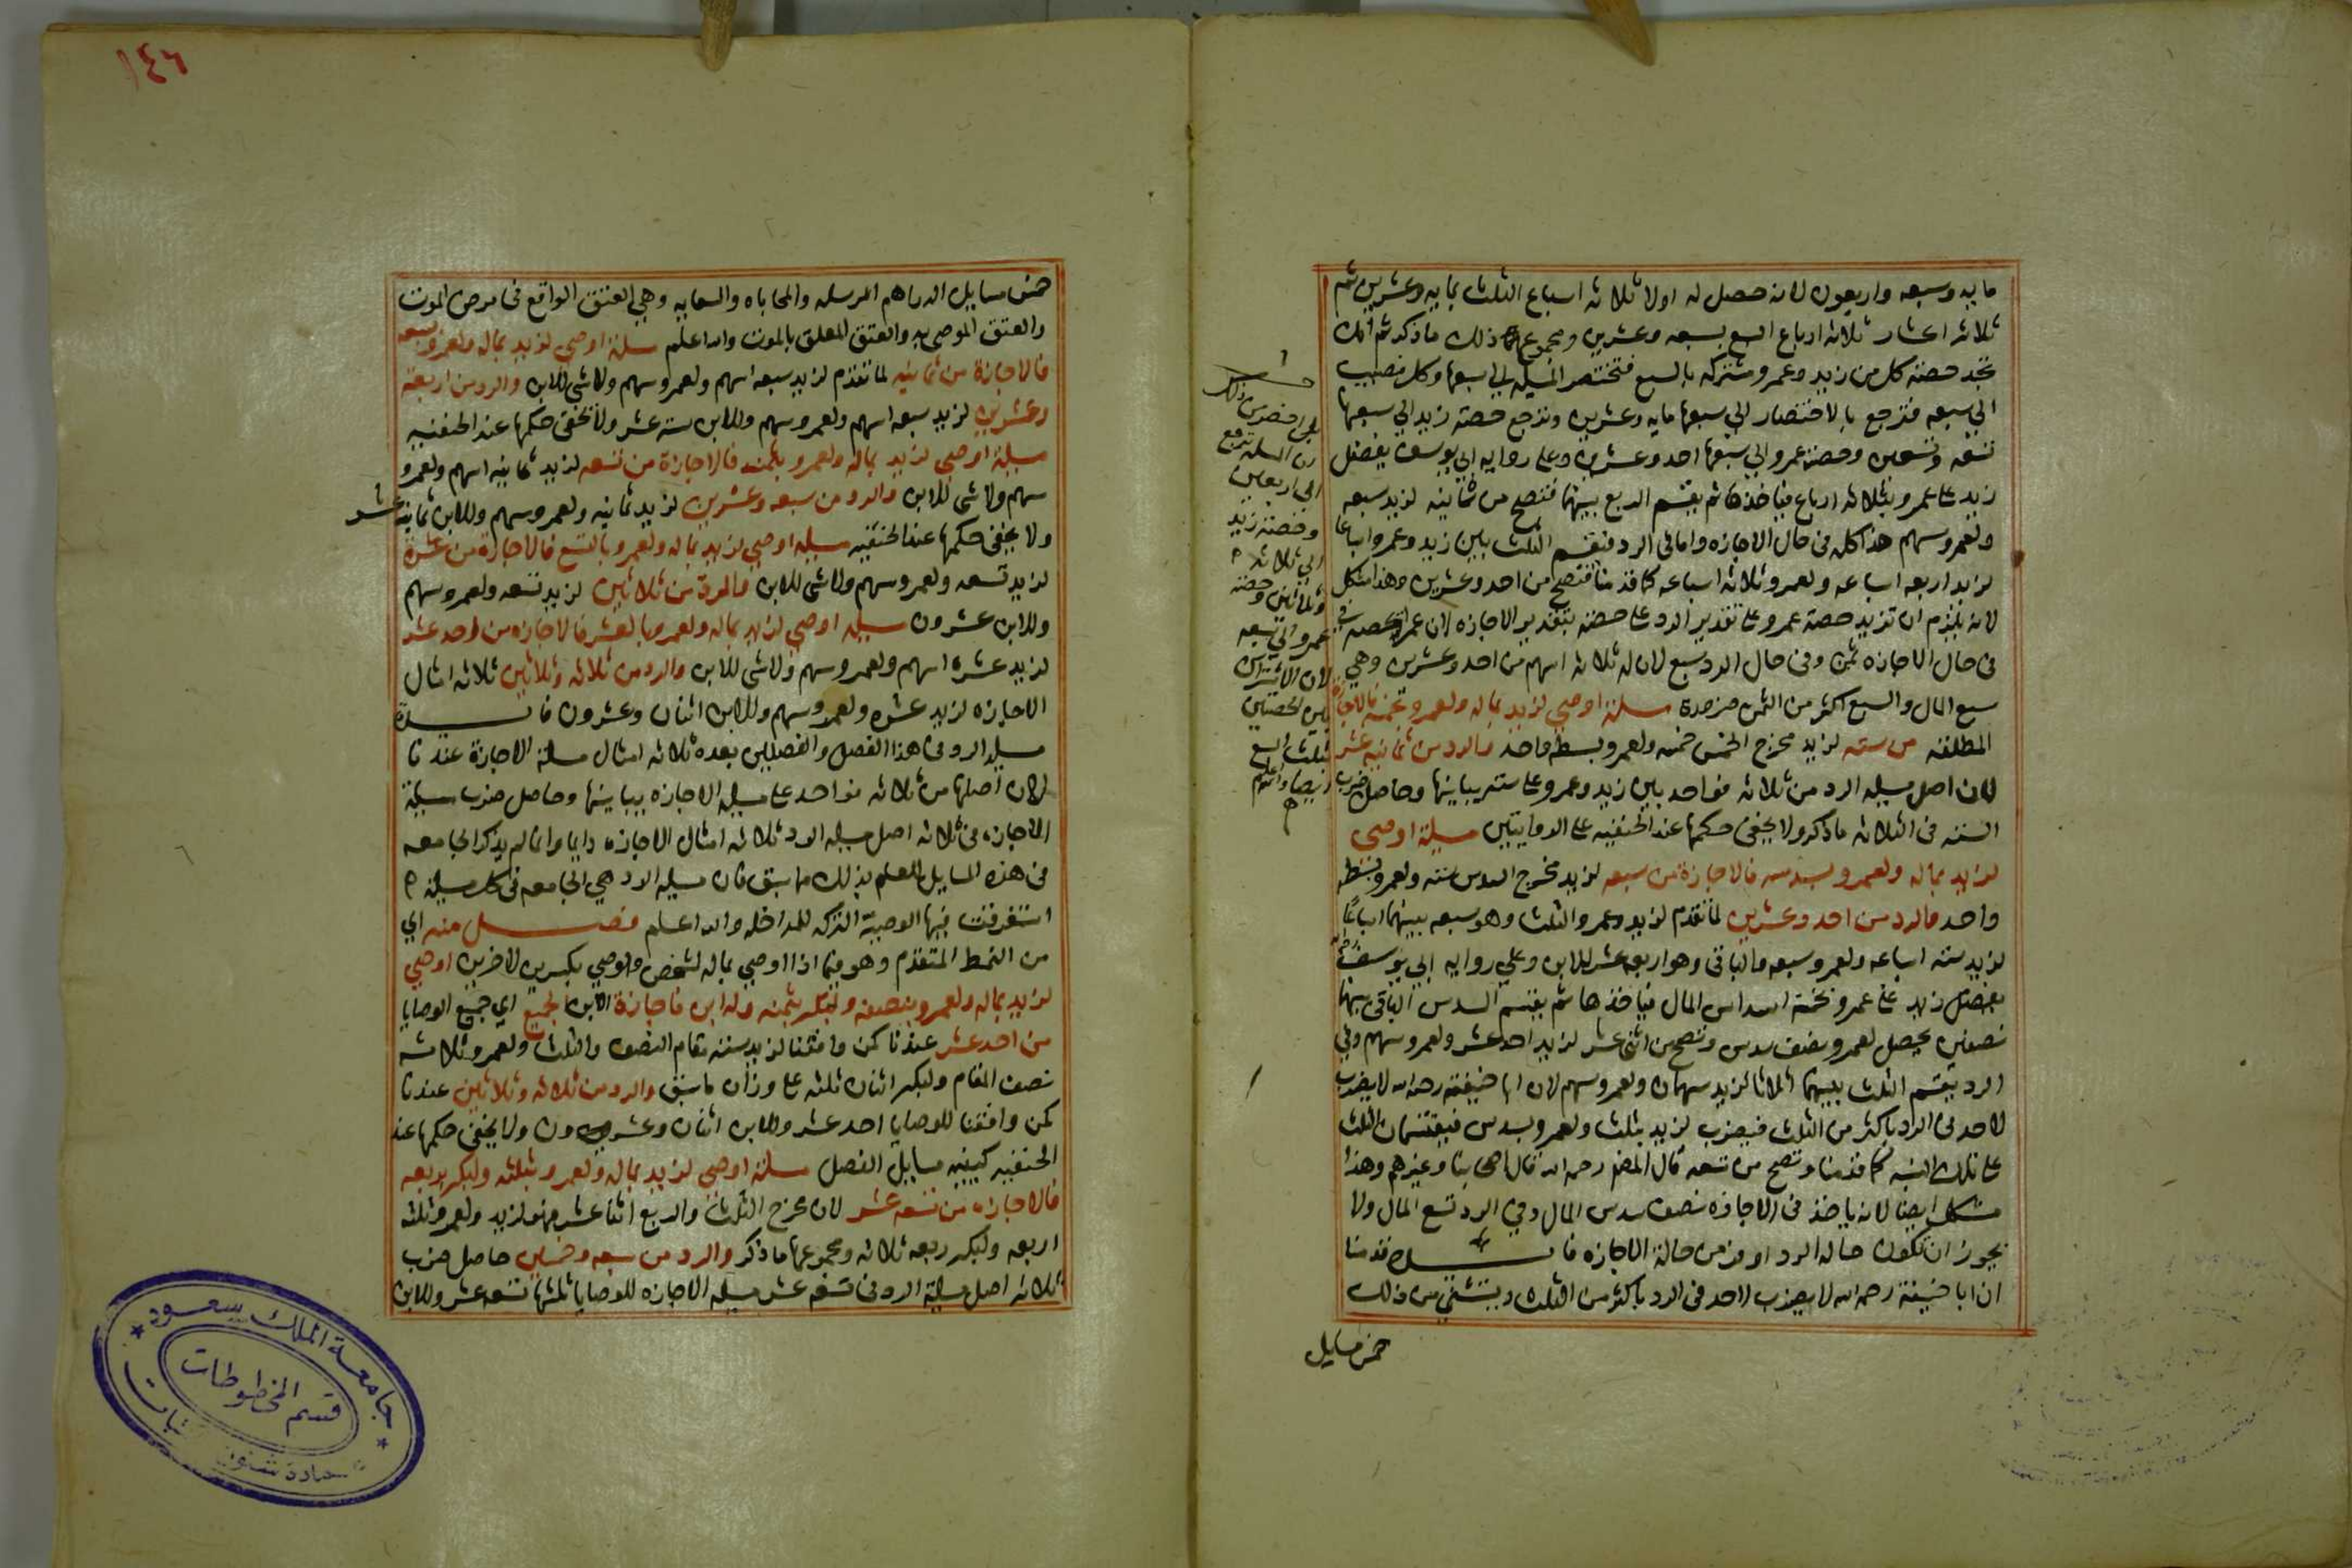 مايه وسبعه واربعون لانه حصل له اولا ثلاثه اسباع الثلث بمايه وعشرين ثم
ثلاثه اعشار ثلاثه ارباع السبع بسبعه وعشرين ومجموع ذلك ماذكر ثم انك
تجد حصته كل من زيد وعمرو مشتركه بالسبع فتختصر المسيله الي سبعها وكل نصيب
الي سبعه فترجع بالاختصار الي سبعها مايه وعشرين وترجع حصة زيد الي سبعها
تسعه وتسعين وحصة عمرو الي سبعها احد وعشرين وعلى روايه ابي يوسف يفضل
زيد على عمرو بثلاثه ارباع فياخذها ثم يقسم الربع بينهما فتصح من ثمانيه لزيد سبعه
ولعمرو سهم هذا كله في حال الاجازه واما في الرد فنقسم الثلث بين زيد وعمرو اسباعا
لزيد اربعه اسباعه ولعمرو ثلاثه اسباعه كما قدمنا فتصح من احد وعشرين وهذا مشكل
لانه يلزم ان تزيد حصة عمرو على تقدير الرد على حصته بتقدير الاجازه لان عمرا حصته
في حال الاجازه ثمن وفي حال الرد سبع لان له ثلاثه اسهم من احد وعشرين وهي
سبع المال والسبع اكثر من الثمن ضرورة مسيلة اوصي لزيد بماله ولعمرو بخمسه فالاجازة
المطلقه من سته لزيد مخرج الخمس خمسه ولعمرو بسطه واحد والرد من ثمانيه عشر
لان اصل مسيله الرد من ثلاثه فواحد بين زيد وعمرو على سته يباينها وحاصل ضرب
السته في الثلاثه ماذكر ولا يخفى حكمها عند الحنفيه على الروايتين مسيلة اوصي
لزيد بماله ولعمرو بسدسه فالاجازة من سبعه لزيد مخرج السدس سته ولعمرو بسطه
واحد والرد من احد وعشرين لما تقدم لزيد وعمرو الثلث وهو سبعه بينهما اسباعا
لزيد سته اسباعه ولعمرو سبعه والباقى وهو اربعه عشر للابن وعلي روايه ابي يوسف
يفضل زيد على عمرو بخمسة اسداس المال فياخذها ثم يقسم السدس الباقي بينهما
نصفين يحصل لعمرو نصف سدس وتصح من اثنى عشر لزيد احد عشر ولعمرو سهم وفي
الرد يقسم الثلث بينهما اثلاثا لزيد سهمان ولعمرو سهم لان ابا حنيفة رحمه الله لا يضرب
لاحد في الرد باكثر من الثلث فيضرب لزيد بثلث ولعمرو بسدس فيقتسمان الثلث
على تلك النسبه كما قدمنا وتصح من تسعه قال المصنف رحمه الله قال اصحابنا وغيرهم وهذا
مشكل ايضا لانه ياخذ في الاجازه نصف سدس المال وفي الرد تسع المال ولا
يجوز ان تكون حالة الرد اوفر من حالة الاجازه فايـــدة قدمنا
ان ابا حنيفة رحمه الله لا يضرب لاحد في الرد باكثر من الثلث ويستثني من ذلك
خمس مسايل
الي اربعين
وحصة زيد
الي ثلاثه
وثلاثين وحصة
عمرو الي سبعه
لان الاشتراك
بين الحصتين
بثلث السبع
ايضا واعلم
١٤٦
خمس مسايل الدراهم المرسله والمحاباه والسعايه وهي العتق الواقع في مرض الموت
والعتق الموصى به والعتق المعلق بالموت والله اعلم مسيلة اوصي لزيد بماله ولعمرو بسبعه
فالاجازة من ثمانيه لما تقدم لزيد سبعه اسهم ولعمرو سهم ولا شى للابن والرد من اربعة
وعشرين لزيد سبعه اسهم ولعمرو سهم وللابن سته عشر ولا يخفى حكمها عند الحنفيه
مسيلة اوصي لزيد بماله ولعمرو بثمنه فالاجازة من تسعه لزيد ثمانيه اسهم ولعمرو
سهم ولا شى للابن والرد من سبعه وعشرين لزيد ثمانيه ولعمرو سهم وللابن ثمانية عشر
ولا يخفى حكمها عند الحنفيه مسيله اوصي لزيد بماله ولعمرو بالتسع فالاجازة من عشرة
لزيد تسعه ولعمرو سهم ولا شى للابن والرد من ثلاثين لزيد تسعه ولعمرو سهم
وللابن عشرون مسيله اوصي لزيد بماله ولعمرو بالعشر فالاجازه من احد عشر
لزيد عشره اسهم ولعمرو سهم ولا شى للابن والرد من ثلاثه وثلاثين ثلاثه امثال
الاجازه لزيد عشره ولعمرو سهم وللابن اثنان وعشرون فايـــدة
مسيله الرد في هذا الفصل والفصلين بعده ثلاثه امثال مسيلة الاجازة عندنا
لان اصلها من ثلاثه فواحد على مسيله الاجازه يباينها وحاصل ضرب مسيلة
الاجازه في ثلاثه اصل مسيله الرد ثلاثه امثال الاجازه دايما وانما لم يذكر الجامعه
في هذه المسايل للعلم بذلك مما سبق فان مسيله الرد هي الجامعه في كل مسيلة
استغرقت فيها الوصية التركه للمداخله والله اعلم فصـــل منه اي
من النمط المتقدم وهو فيما اذا اوصي بماله لشخص واوصي بكسرين لاخرين اوصي
لزيد بماله ولعمرو بنصفه ولبكر بثلثه وله ابن فاجازة الابن للجميع اي جميع الوصايا
من احد عشر عندنا كمن وافقنا لزيد سته مقام النصف والثلث ولعمرو ثلاثه
نصف المقام ولبكر اثنان ثلثه على وزان ما سبق والرد من ثلاثه وثلاثين عندنا
كمن وافقنا للوصايا احد عشر وللابن اثنان وعشرون ولا يخفى حكمها عند
الحنفيه كبقيه مسايل الفصل مسيلة اوصي لزيد بماله ولعمرو بثلثه ولبكر بربعه
فالاجازه من تسعه عشر لان مخرج الثلث والربع اثنا عشر فهو لزيد ولعمرو ثلثه
اربعه ولبكر ربعه ثلاثه ومجموعها ماذكر والرد من سبعه وخمسين حاصل ضرب
ثلاثه اصل مسيلة الرد في تسعه عشر مسيله الاجازه للوصايا ثلثها تسعه عشر وللابن
جامعة الملك سعود
قسم المخطوطات